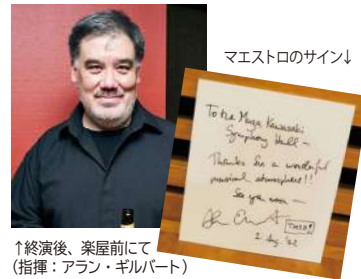 マエストロのサイン↓
To the Muza Kawasaki
Symphony Hall –
Thanks for a wonderful
musical atmosphere!!
See you soon –
TMSO
2 Aug. '22
↑終演後、楽屋前にて
(指揮：アラン・ギルバート)